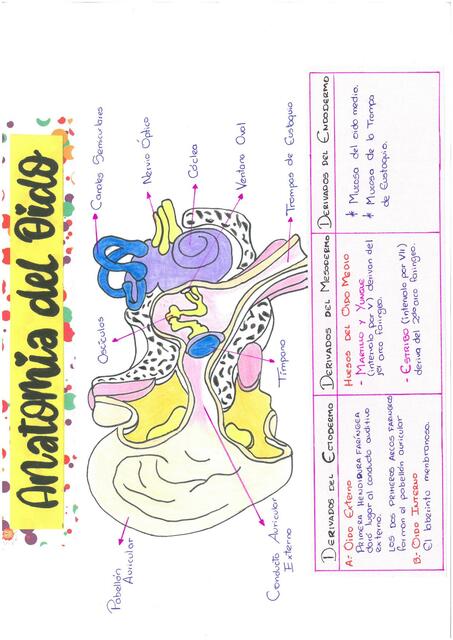 Anatomia del Oido
Canales Semicirculares
Nervio Óptico
Cóclea
Ventana Oval
Trompas de Eustaquio
Oscículos
Tímpano
Pabellón
Auricular
Conducto Auricular
Externo
Derivados del Ectodermo
A.- Oido Externo
Primera Hendidura Faríngea
dará lugar al conducto auditivo
externo.
Los dos primeros arcos faríngeos
forman el pabellón auricular
B.- Oido Interno
El laberinto membranoso.
Derivados del Mesodermo
Huesos del Oido Medio
- Martillo y Yunque
(intervalo por V) derivan del
1er arco faríngeo.
- Estribo (intervalo por VII)
deriva del 2do arco faríngeo.
Derivados del Endodermo
* Mucosa del oido medio.
* Mucosa de la Trompa
de Eustaquio.